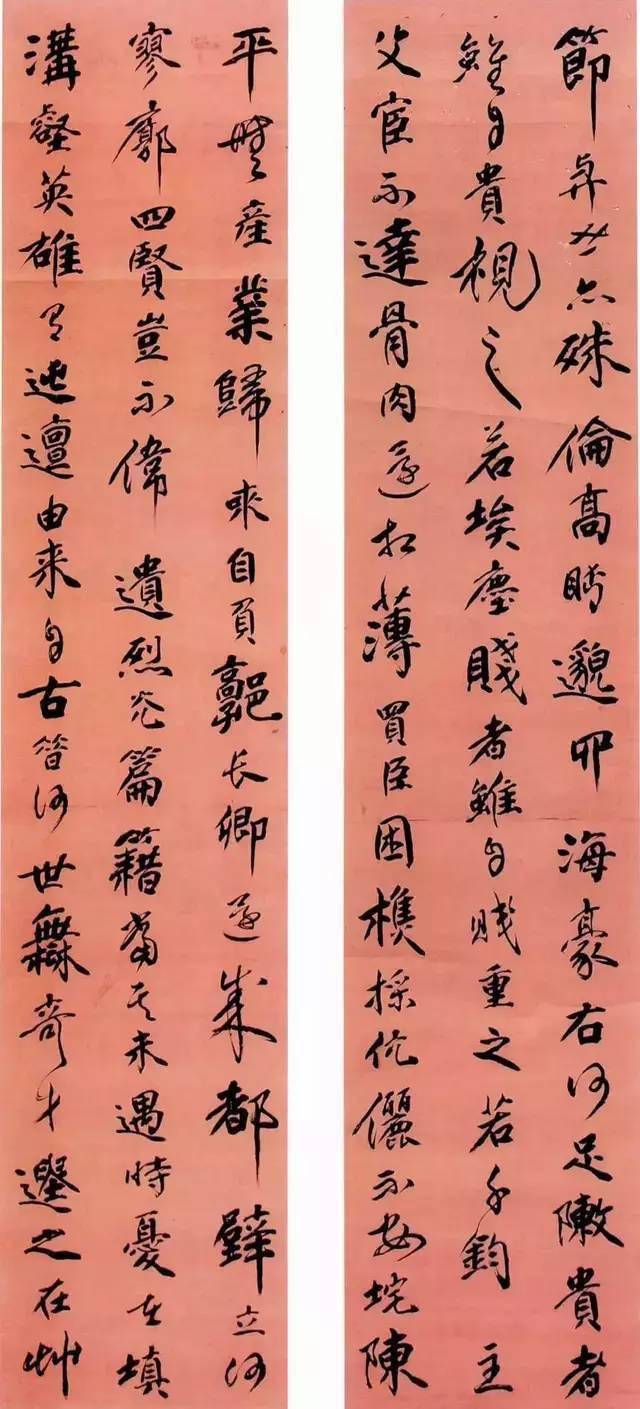 節與世亦殊倫高眄邈四海豪右何足敶貴者
雖自貴視之若埃塵賤者雖自賤重之若千鈞主
父宦不達骨肉還相薄買臣困樵採伉儷不安宅陳
平無產業歸來自負郭長卿還成都壁立何
寥廓四賢豈不偉遺烈光篇籍當其未遇時憂在填
溝壑英雄有迍邅由来自古昔何世無奇才遺之在艸